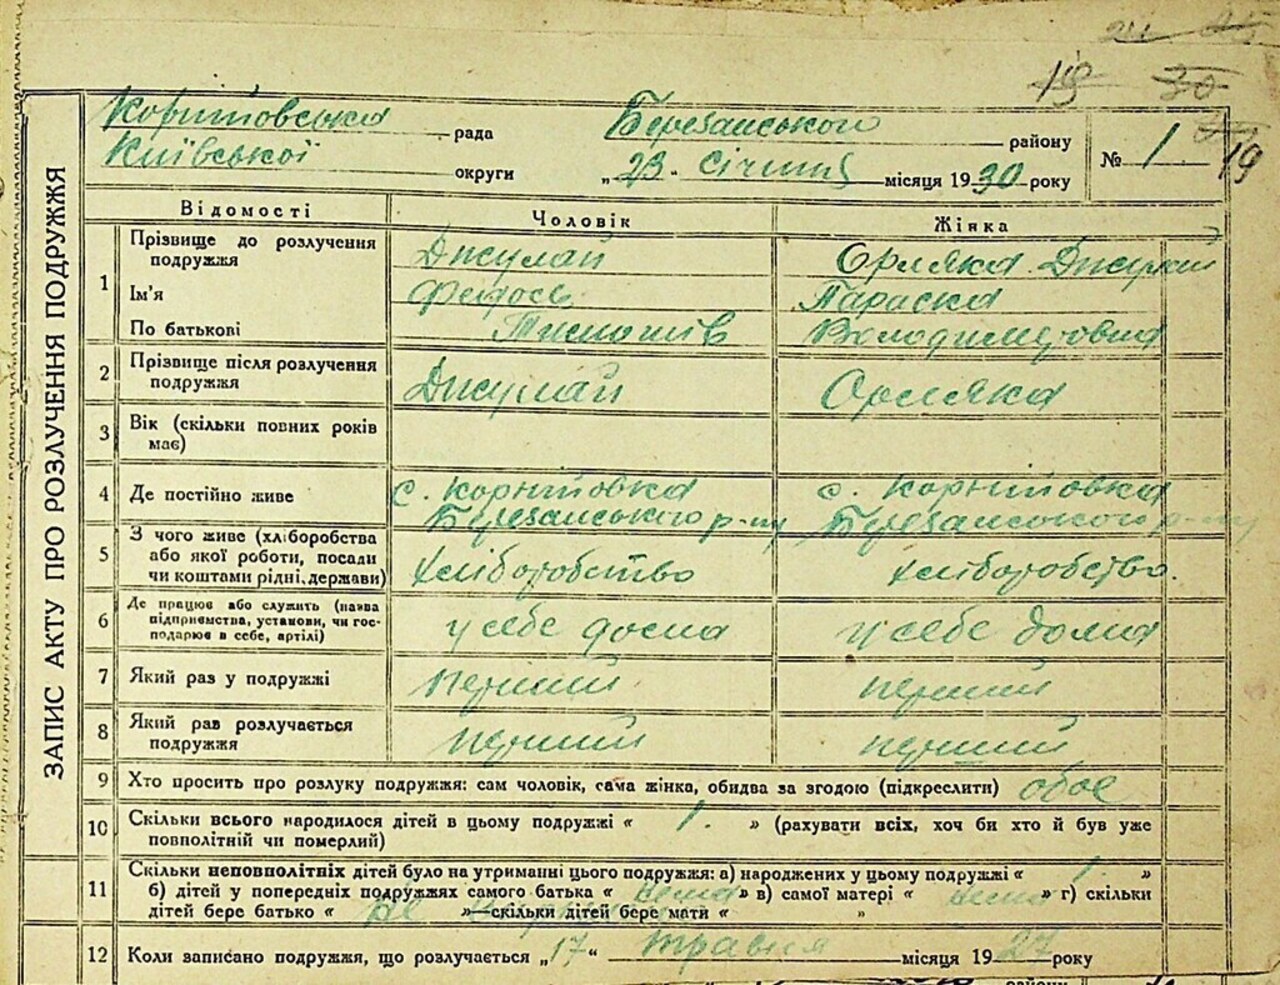 19 30
19
ЗАПИС АКТУ ПРО РОЗЛУЧЕННЯ ПОДРУЖЖЯ
Корнїївська рада Березанського району
Київської округи „23" Січня місяця 1930 року
№ 1
Відомості Чоловік Жінка
1 Прізвище до розлучення подружжя Джулай Орляка Джулай
Ім'я Федось Параска
По батькові Тимошів Володимировна
2 Прізвище після розлучення подружжя Джулай Орляка
3 Вік (скільки повних років має)
4 Де постійно живе с. Корніївка с. Корніївка
Березанського р-ну Березанського р-ну
5 З чого живе (хліборобства
або якої роботи, посади
чи коштами рідні, держави) хліборобство хліборобство.
6 Де працює або служить (назва
підприємства, установи, чи гос-
подарює в себе, артілі) у себе дома у себе дома
7 Який раз у подружжі перший перший
8 Який раз розлучається
подружжя перший перший
9 Хто просить про розлуку подружжя: сам чоловік, сама жінка, обидва за згодою (підкреслити) обоє
10 Скільки всього народилося дітей в цьому подружжі « 1. » (рахувати всіх, хоч би хто й був уже
повполітній чи померлий)
11 Скільки неповполітніх дітей було на утриманні цього подружжя: а) народжених у цьому подружжі « 1. »
б) дітей у попередніх подружжях самого батька « нема » в) самої матері « нема » г) скільки
дітей бере батько « не » —скільки дітей бере мати « »
12 Коли записано подружжя, що розлучається „17" травня місяця 1927 року
району